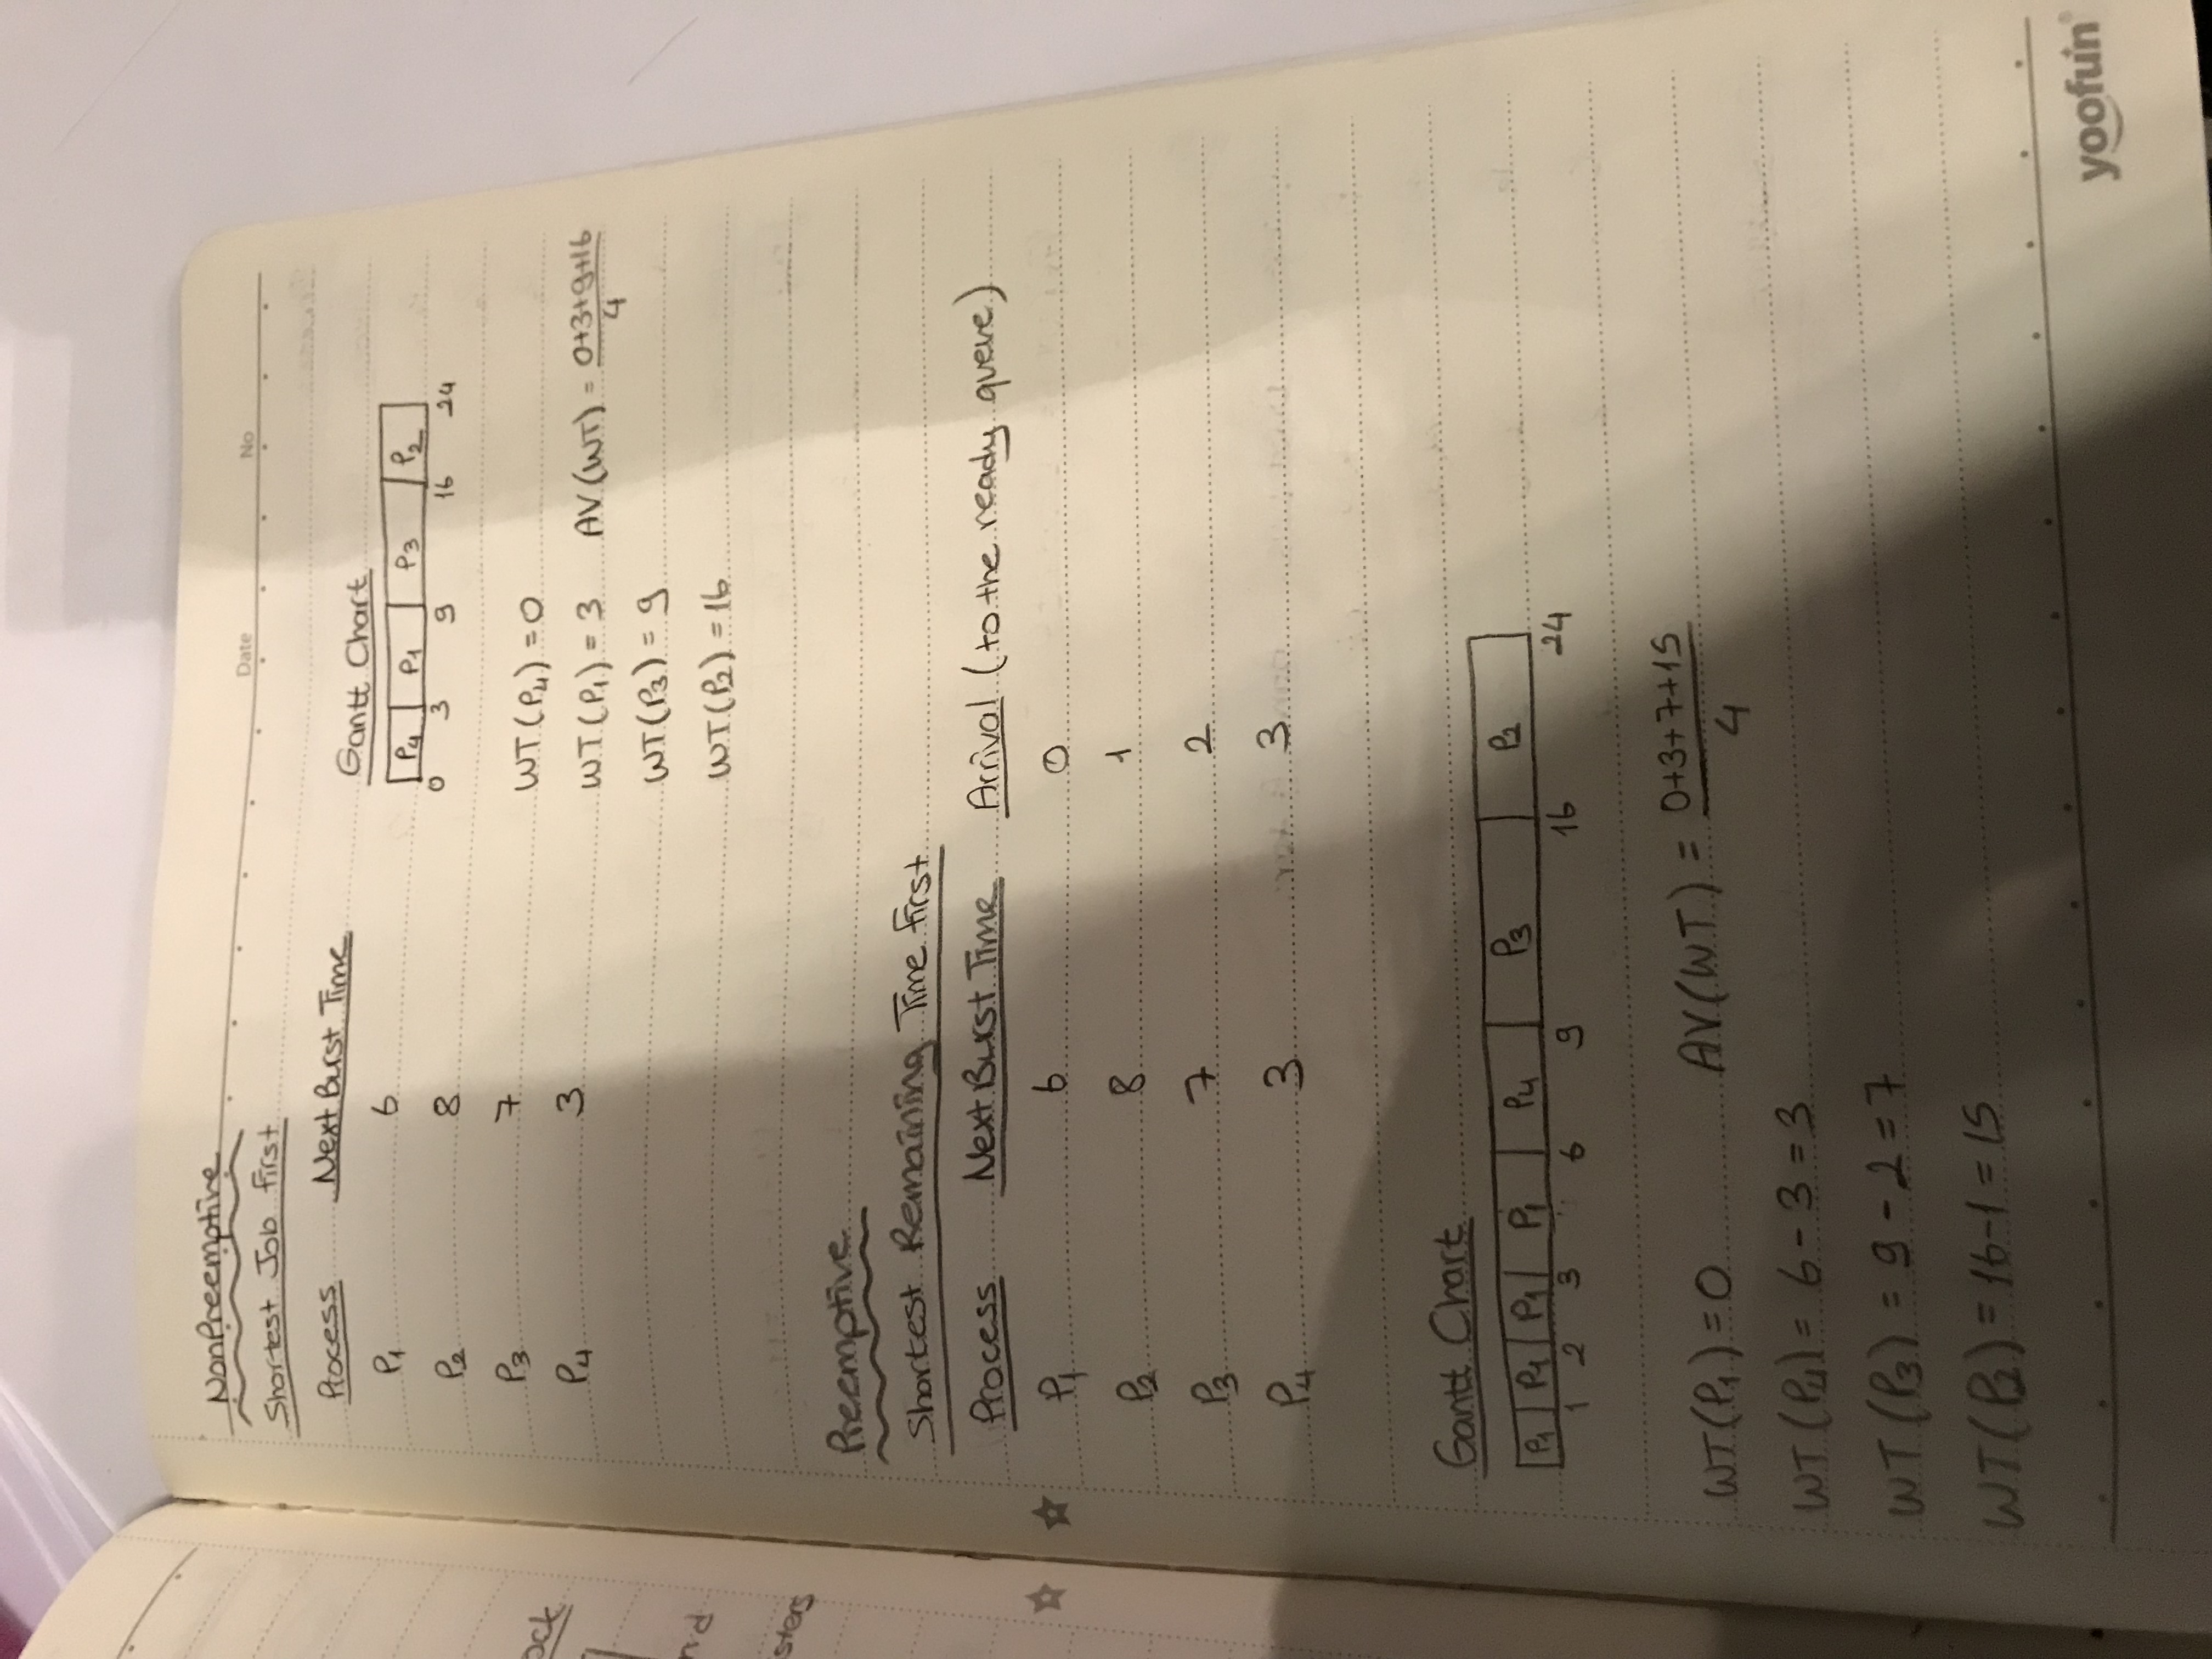 NonPreemptive
Date No
Shortest Job First
Process Next Burst Time
P1 6
P2 8
P3 7
P4 3
Gantt Chart
P4 P1 P3 P2
0 3 9 16 24
WT(P4) = 0
WT(P1) = 3 AV(WT) = 0+3+9+16
4
WT(P3) = 9
WT(P2) = 16
ock
nd
sters
Preemptive
Shortest Remaining Time First
Process Next Burst Time Arrival (to the ready queue)
P1 6 0
P2 8 1
P3 7 2
P4 3 3
Gantt Chart
P1 P1 P1 P1 P4 P3 P2
1 2 3 6 9 16 24
WT(P1) = 0 AV(WT) = 0+3+7+15
4
WT(P4) = 6 - 3 = 3
WT(P3) = 9 - 2 = 7
WT(P2) = 16 - 1 = 15
yoofun